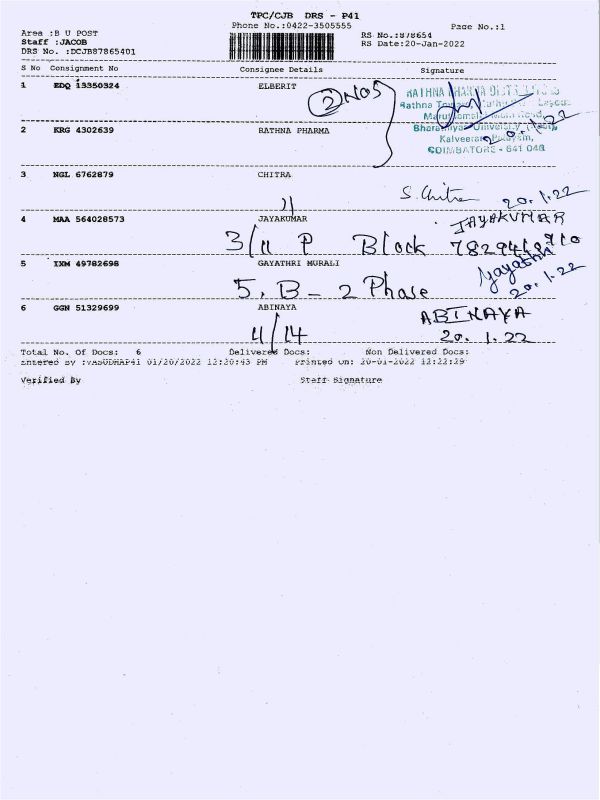 TPC/CJB DRS - P41
Phone No.:0422-3505555
Page No.:1
Area :B U POST
Staff :JACOB
DRS No. :DCJB87865401
RS No.:878654
RS Date:20-Jan-2022
S No Consignment No Consignee Details Signature
1 EDQ 13350324 ELBERIT
2 NOS
RATHNA PHARMA
Bharathiyar University (Post),
COIMBATORE - 641 046
20.1.22
2 KRG 4302639 RATHNA PHARMA
3 NGL 6762879 CHITRA
S. Chitra 20.1.22
4 MAA 564028573 JAYAKUMAR
JAYAKUMAR
3/11 P Block
5 IXM 49782698 GAYATHRI MURALI
Gayathri
20.1.22
5, B - 2 Phase
6 GGN 51329699 ABINAYA
ABINAYA
4/14
20.1.22
Total No. Of Docs: 6 Delivered Docs: Non Delivered Docs:
Entered By :VASUDHAP41 01/20/2022 12:20:43 PM Printed On: 20-01-2022 12:22:29
Verified By Staff Signature